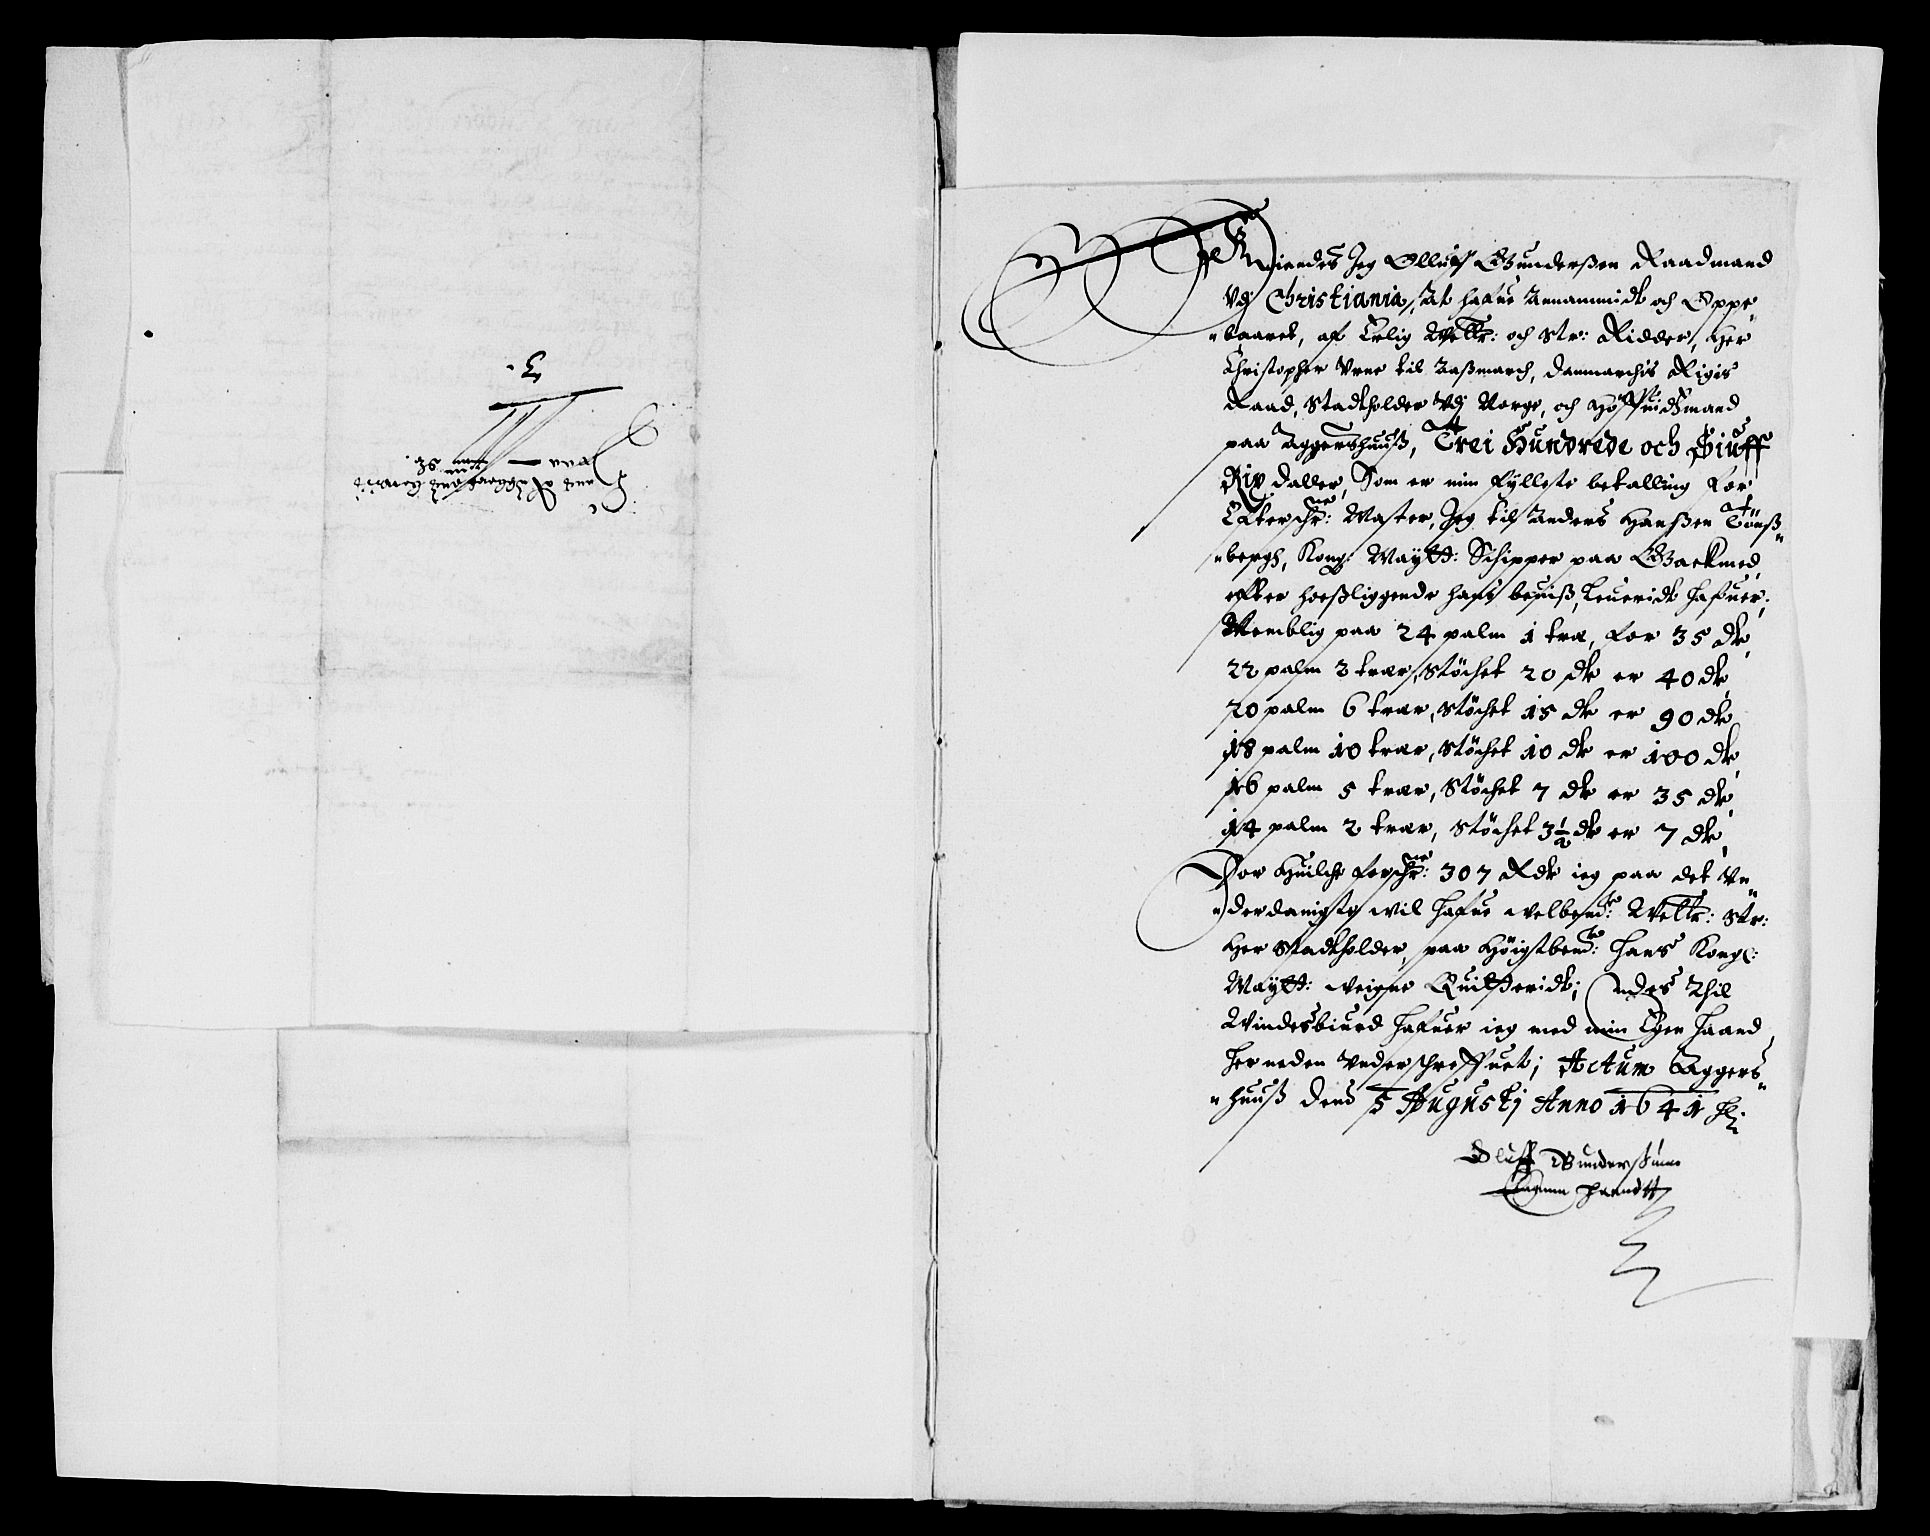 Kiendes Jeg Olluf Gunderßen Raadmand
Vdj Christiania, At hafue Annammidt och Oppe¬
¬baaret, af Erlig Weltr: och Str: Ridder, Her
Christopher Vrne til Aaßmarch, Danmarchis Rigis
Raad, Stadtholder Vdj Norge, och Höffuidtzmand
paa Aggershuuß, Trei Hundrede och Siuff
Rix daller, Som er min fylleste betalling for
Effterschr:ne Master, Jeg til Anders Hanßen Tönß¬
¬bergh, Kong: Maytt: Schipper paa
efter hoeßliggende hans beuiß, Leueridt hafuer;
Nemblig paa 24 palm 1 træ, for 35 dr,
22 palm 2 trær, Støchet 20 dr er 40 dr,
20 palm 6 trær, Støchet 15 dr er 90 dr,
18 palm 10 trær, Støchet 10 dr er 100 dr,
16 palm 5 trær, Støchet 7 dr er 35 dr,
14 palm 2 trær, Støchet 3½ dr er 7 dr,
For Huilche forschr:ne 307 Rdr ieg paa det Vn¬
¬derdanigste wil hafue welbem:te Weltr: Str:
Her Stadtholder, paa Höigstbem:te Hans Kongl:
Maytt: weigne Quitteridt; Dis Thil
Windesbiurd hafuer ieg med min Egen haand
her neden Vnderschreffuet; Actum Aggers¬
¬huuß den 5 Augustj Anno 1641
Oluff Gunderßenn
Eagenn haandtt
3.